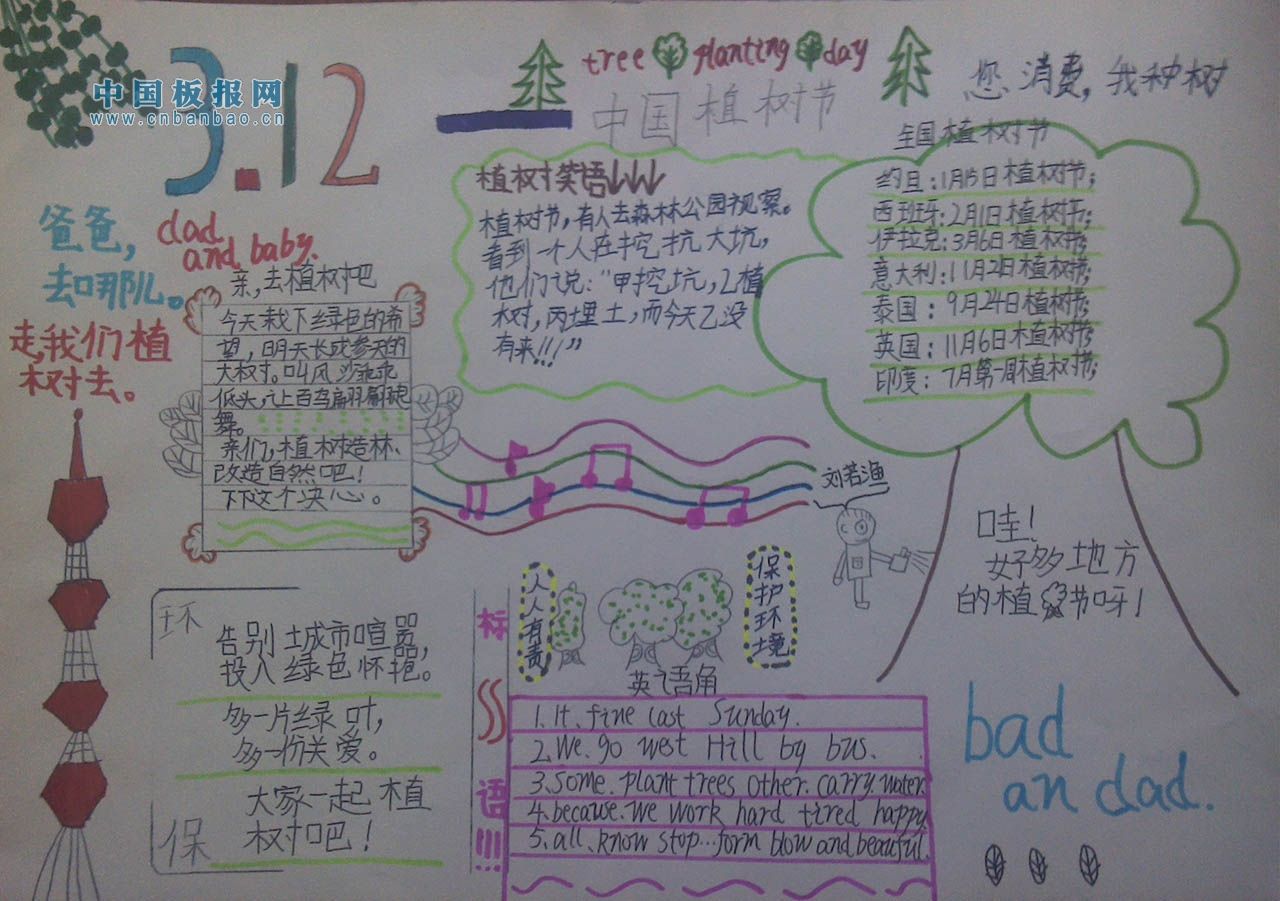 中国板报网
www.cnbanbao.cn
3.12
tree planting day
中国植树节
您消费，我种树
爸爸，
去哪儿。
dad
and baby.
走我们植
树去。
亲，去植树吧
今天栽下绿色的希
望，明天长成参天的
大树。叫风沙乖乖
低头，让百鸟扇羽翩跹
舞。
亲们，植树造林、
改造自然吧！
下下这个决心。
植树笑语
植树节，有人去森林公园视察。
看到一个人在挖坑大坑，
他们说：“甲挖坑，乙植
树，丙埋土，而今天乙没
有来!!!”
全国植树节
约旦：1月15日植树节；
西班牙：2月1日植树节；
伊拉克：3月6日植树节；
意大利：11月21日植树节；
泰国：9月24日植树节；
英国：11月6日植树节；
印度：7月第一周植树节；
刘若渔
哇！
好多地方
的植节呀！
环
保
告别城市喧嚣，
投入绿色怀抱。
多一片绿叶，
多一份关爱。
大家一起植
树吧！
标
语!!!
人人有责
保护环境
英语角
1. It. fine last Sunday.
2. We. go west Hill by bus.
3. Some. plant trees other. carry. water.
4. because. we work hard tired happy
5. all. know stop...form blow and beautiful.
bad
an dad.